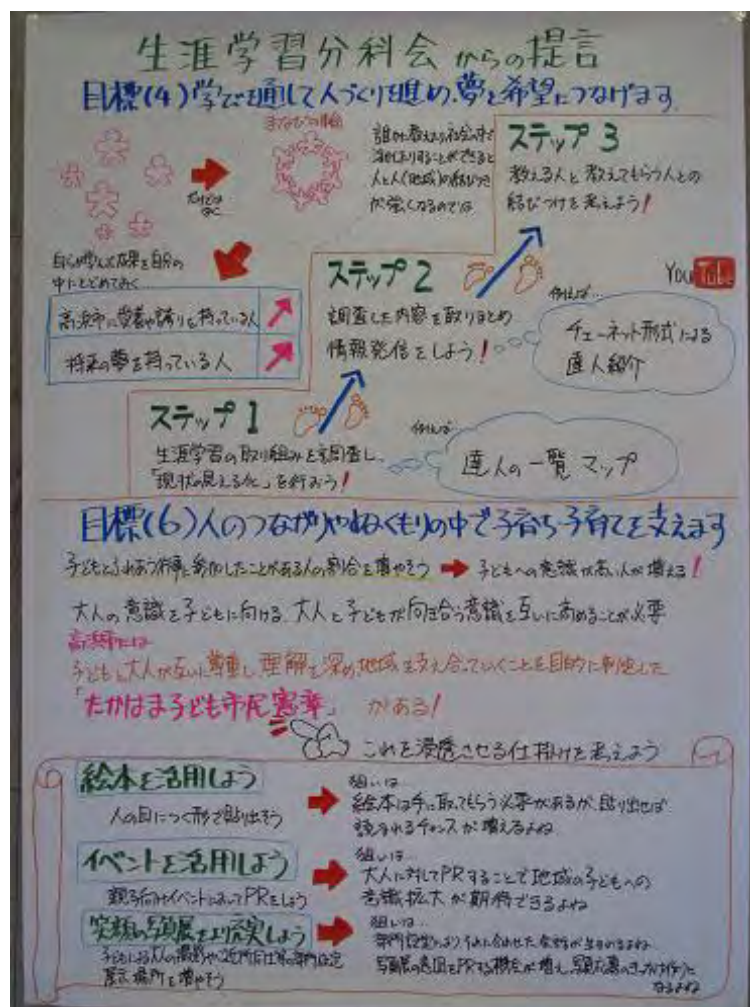 生涯学習分科会からの提言
目標(4)学びを通して人づくりを進め、夢と希望につなげます
まなびの輪
だけでは
なく
誰かに教えたり、社会の中で
活かしたりすることができると
人と人(地域)の結びつき
が強くなるのでは
ステップ3
教える人と教えてもらう人との
結びつけを考えよう!
自らが学んだ成果を自分の
中にとどめておく
高浜市に愛着や誇りを持っている人
将来の夢を持っている人
ステップ2
調査した内容を取りまとめ
情報発信をしよう!
YouTube
例えば…
チューネット形式による
達人紹介
ステップ1
生涯学習の取り組みを調査し、
「現状の見える化」を行おう!
例えば
達人の一覧マップ
目標(6)人のつながりやぬくもりの中で子育ち・子育てを支えます
子どもとふれあう行事に参加したことがある人の割合を増やそう
子どもへの意識が高い人が増える!
大人の意識を子どもに向ける、大人と子どもが向き合う意識を互いに高めることが必要
高浜市には
子どもと大人が互いに尊重し理解を深め地域を支え合っていくことを目的に制定した
「たかはま子ども市民憲章」がある!
これを浸透させる仕掛けを考えよう
絵本を活用しよう
人の目につく形で貼り出そう
狙いは…
絵本は手に取ってもらう必要があるが、貼り出せば
読まれるチャンスが増えるよね
イベントを活用しよう
親子向けイベントにおいてPRをしよう
狙いは…
大人に対してPRすることで地域の子どもへの
意識拡大が期待できるよね
笑顔の写真展をより充実しよう
子どもによる大人の撮影や
部門設定
展示場所を増やそう
狙いは…
部門設定により
写真展の意図をPRする機会が増え、写真応募のきっかけ作りに
なるよね